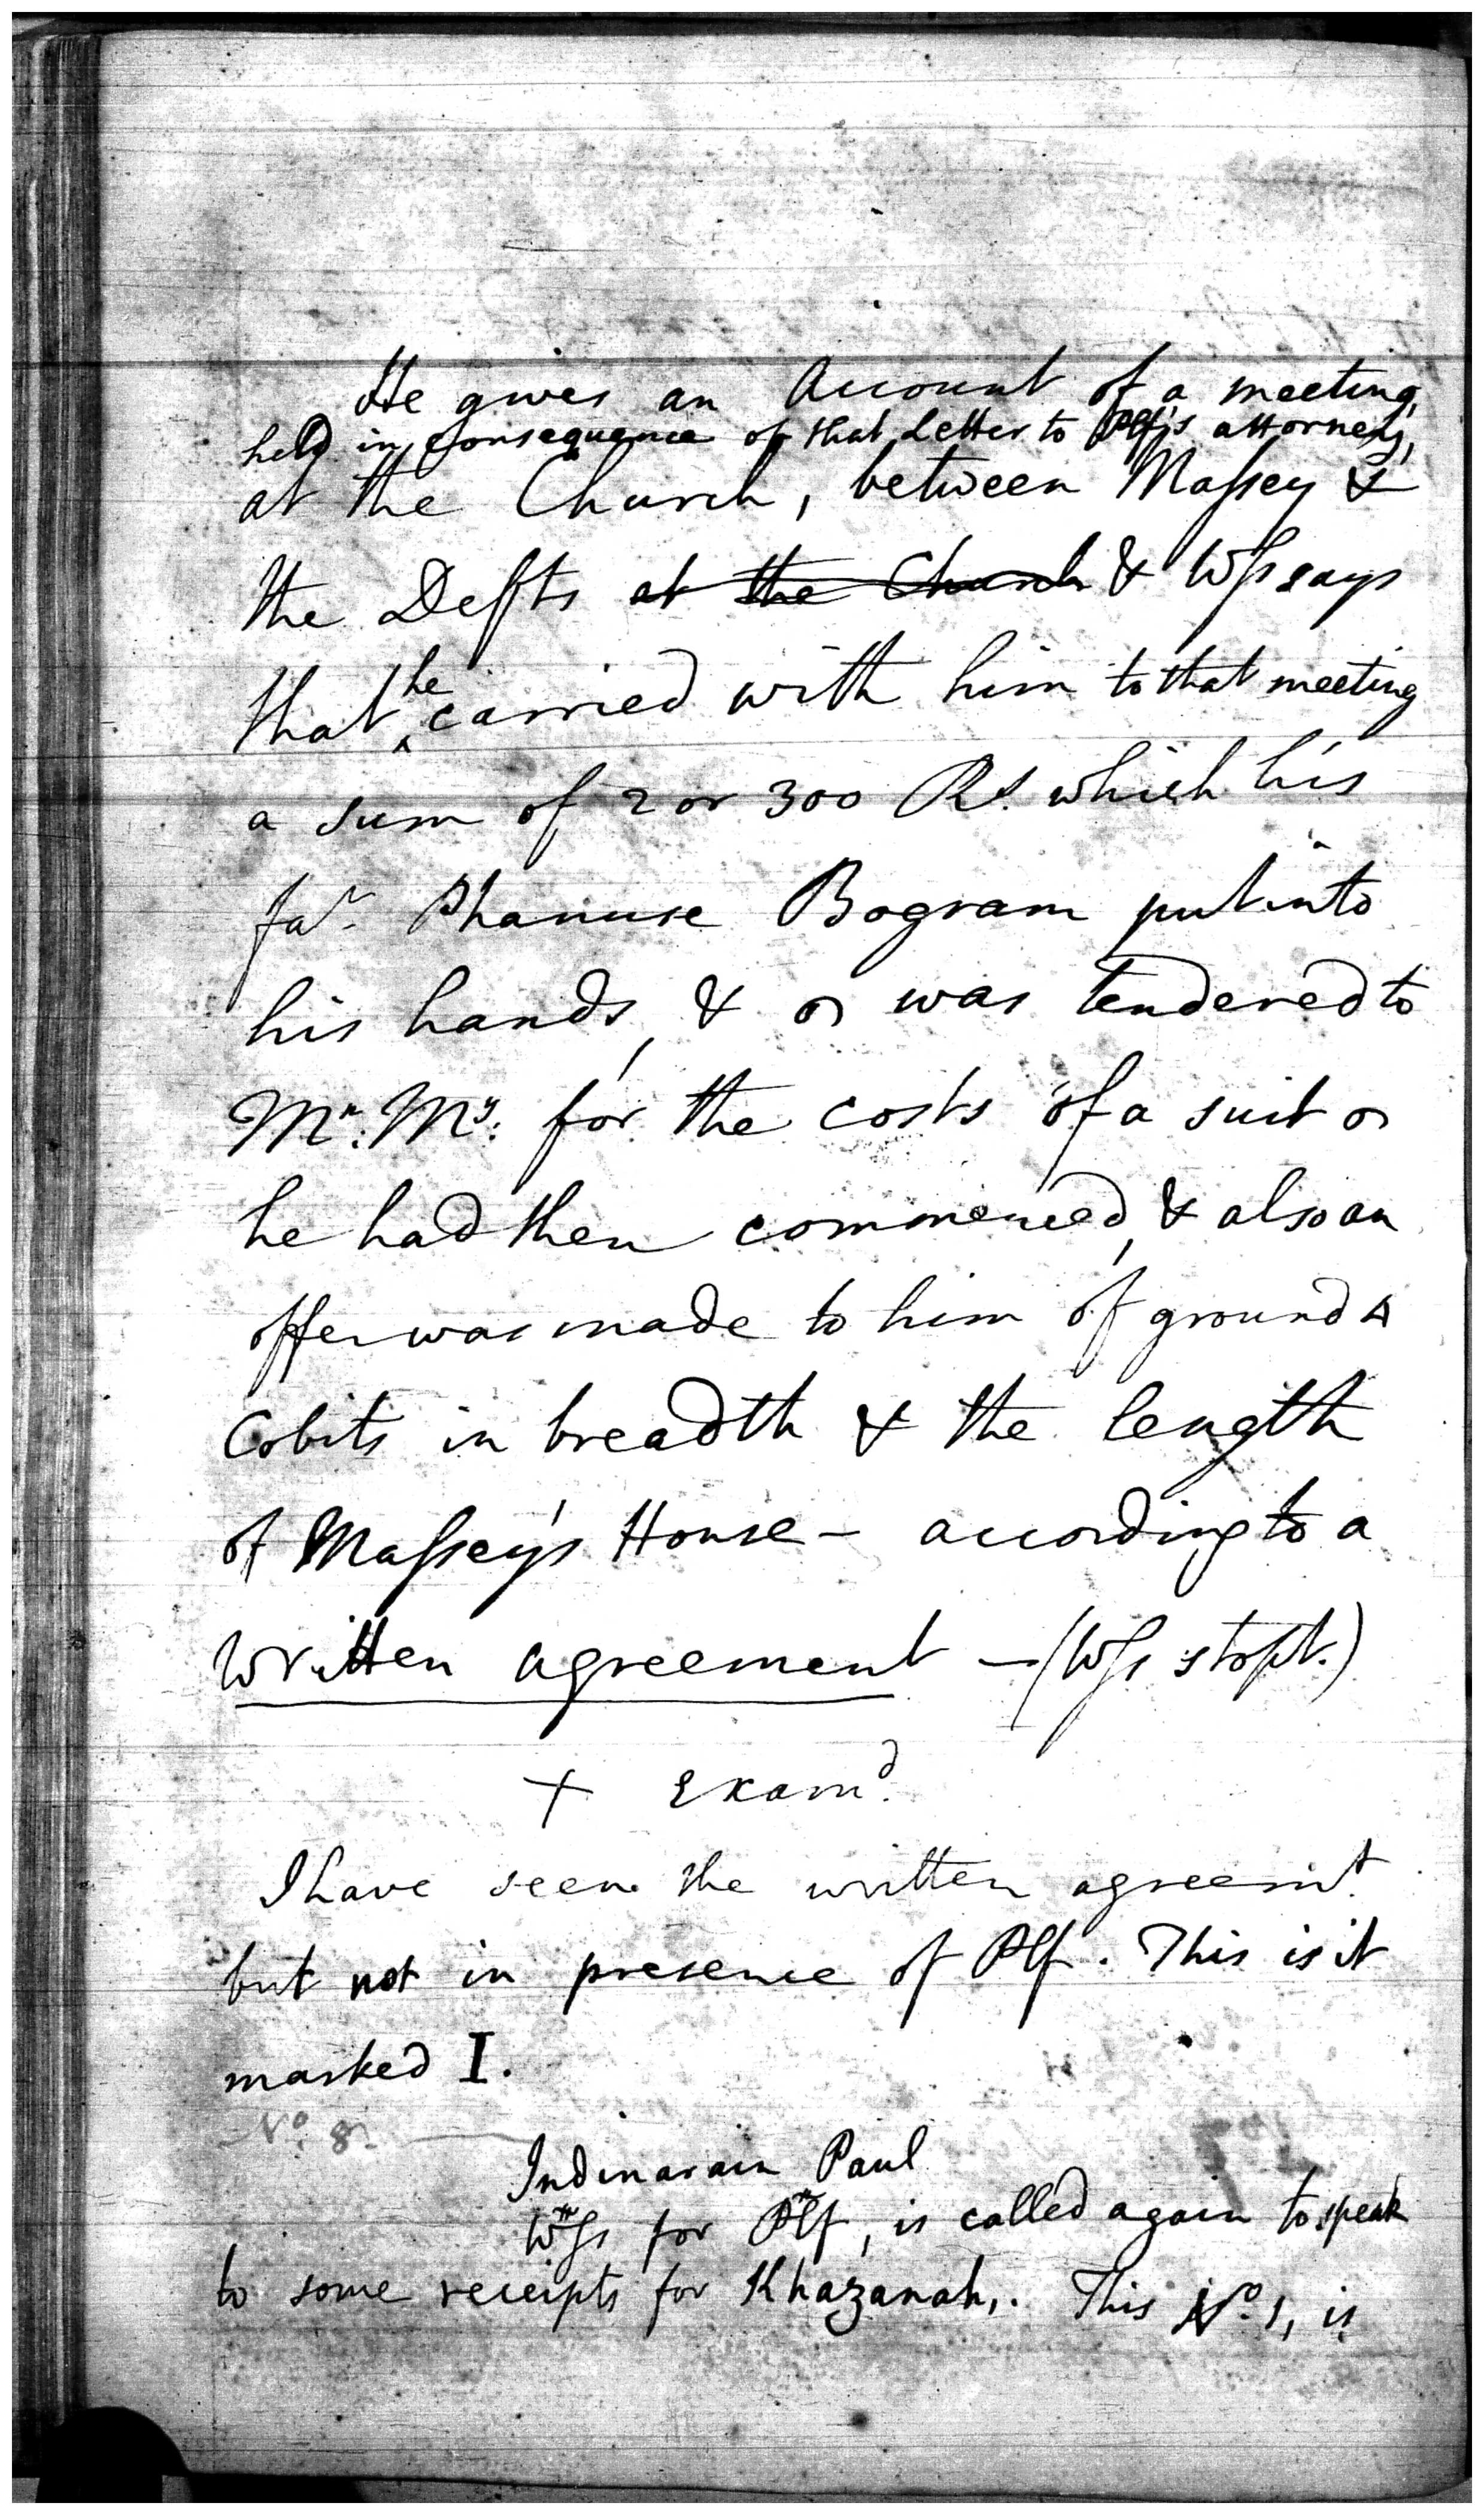 He gives an Account of a meeting,
held in consequence of that Letter to Plf's attorneys,
at the Church, between Massey &
the Defts at the Church & Wss says
that he carried with him to that meeting
a sum of 2 or 300 Rs. which his
far. Phanuse Bogram put into
his hands, & was tendered to
Mr. My. for the costs of a suit
he had then commenced, & also an
offer was made to him of ground 4
Cobits in breadth & the length
of Massey's House - according to a
written agreement - (Wss stopt.)
+ Examd.
I have seen the written agreemt.
but not in presence of Plf. This is it
marked I.
No. 8.
Indinarain Paul
Wss for Plf, is called again to speak
to some receipts for Khazanah,. This No. 1, is